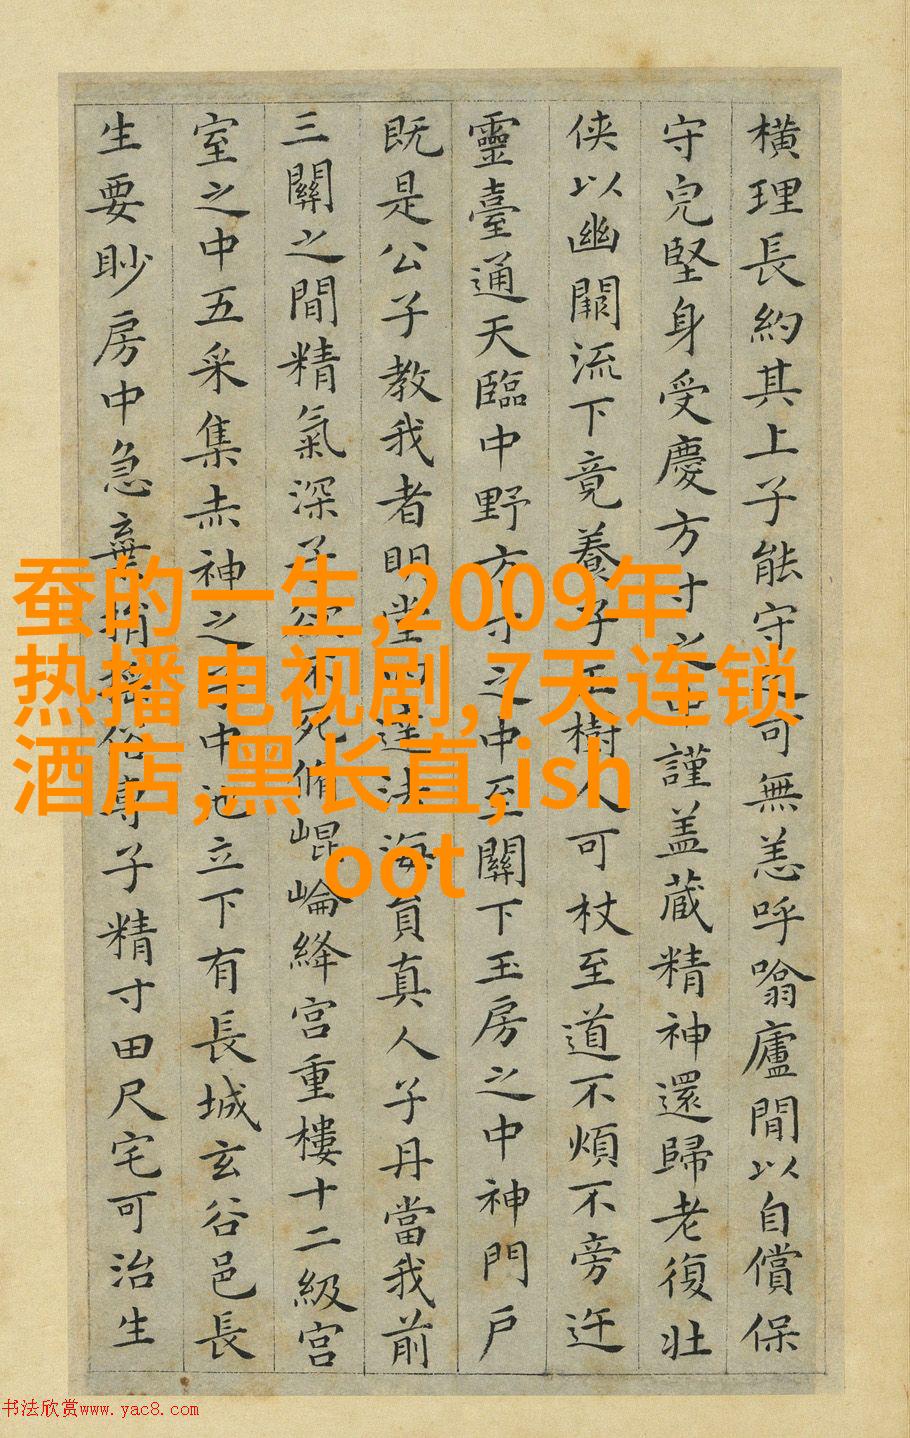 橫理長約其上子能守之可無恙呼噏廬間以自償保
守皃堅身受慶方寸之中謹盖藏精神還歸老復壯
俠以幽闕流下竟養子玉樹人可杖至道不煩不旁迕
靈臺通天臨中野方寸之中至關下玉房之中神門戶
既是公子教我者明堂四達法海員真人子丹當我前
三關之間精氣深子欲不死脩崐崘絳宮重樓十二級宮
室之中五采集赤神之子中池立下有長城玄谷邑長
生要眇房中急棄捐搖俗專子精寸田尺宅可治生
蚕的一生,2009年
热播电视剧,7天连锁
酒店,黑长直,ish
oot
书法欣赏www.yac8.com